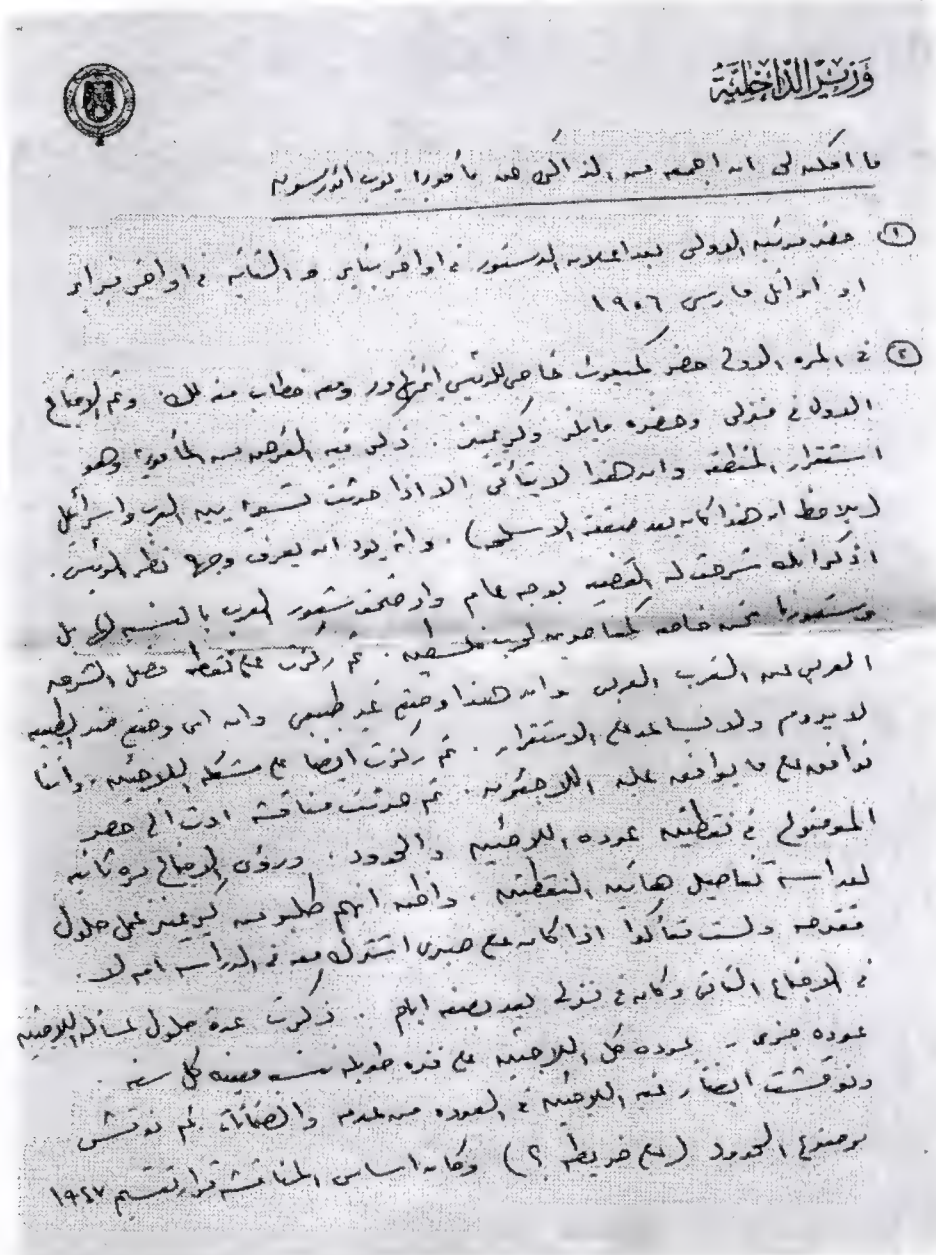 وزير الداخلية
ما امكن لى ان اجمعه من الذاكره عن مأمورية روبرت اندرسون
١ حضر مرتين الاولى بعد اعلان الدستور فى اواخر يناير و الثانيه فى اواخر فبراير
او اوائل مارس ١٩٥٦
٢ فى المره الاولى حضر كمبعوث خاص للرئيس ايزنهاور ومعه خطاب منه لك. وتم الاجتماع
الاول فى منزلى وحضره مايلز وكرميت. ذكر فيه الغرض من المأموريه وهو
استقرار المنطقه وان هذا لا يتأتى الا اذا حدثت تسويه بين العرب واسرائيل
(يلاحظ ان هذا كان بعد صفقة الاسلحه). وانه يود ان يعرف وجهة نظر الرئيس.
اذكر انك شرحت له القضيه بوجه عام واوضحت شعور العرب بالنسبه لاسرائيل
وشعورنا نحن خاصه كمعاصرين لحرب فلسطين. ثم ركزت على نقطة فصل الشرق
العربى عن الغرب العربى وان هذا وضع غير طبيعى وان اى وضع ضد الطبيعه
لا يدوم ولا يساعد على الاستقرار. ثم ركزت ايضا على مشكلة اللاجئين. واننا
نوافق على ما يوافق عليه اللاجئون. ثم حدثت مناقشه ادت الى حصر
الموضوع فى نقطتين عودة اللاجئين والحدود. ورؤى الاجتماع مره ثانيه
لدراسة تفاصيل هاتين النقطتين. واظن انهم طلبوا من كرميت عمل حلول
مقترحه ولست متأكدا اذا كان على صبرى اشترك معه فى الدراسه ام لا.
فى الاجتماع الثانى وكان فى منزلى بعد بضعه ايام. ذكرت عدة حلول لمسألة اللاجئين
عوده جزئى - عودة كل اللاجئين على فتره طويله نسبه معينه كل سنه.
ونوقشت ايضا رغبة اللاجئين فى العوده من عدمه والضمانات. ثم نوقش
موضوع الحدود (على خريطه ؟) وكان اساس المناقشه قرار تقسيم ١٩٤٧